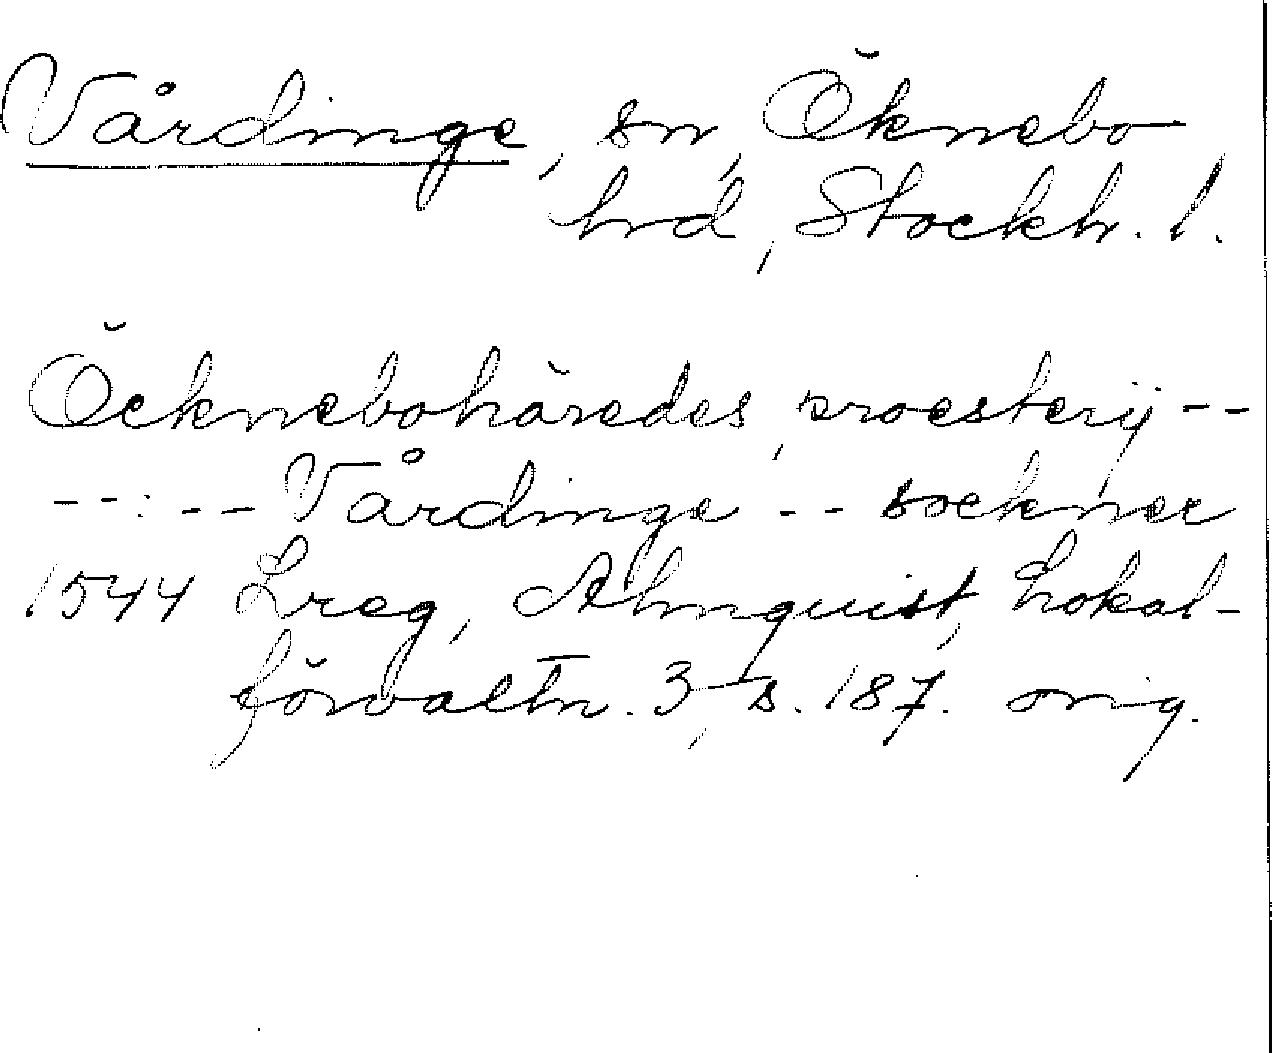 Vårdinge, sn, Öknebo
hrd, Stockh. l.
Öcknebohäredes proesterij --
--:-- Vårdinge -- sockner
1544 Lreg, Almquist, Lokal-
förvaltn. 3, s. 187. orig.